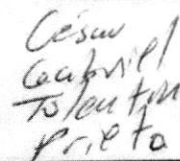 César
Gabriel
Tolentino
Prieto